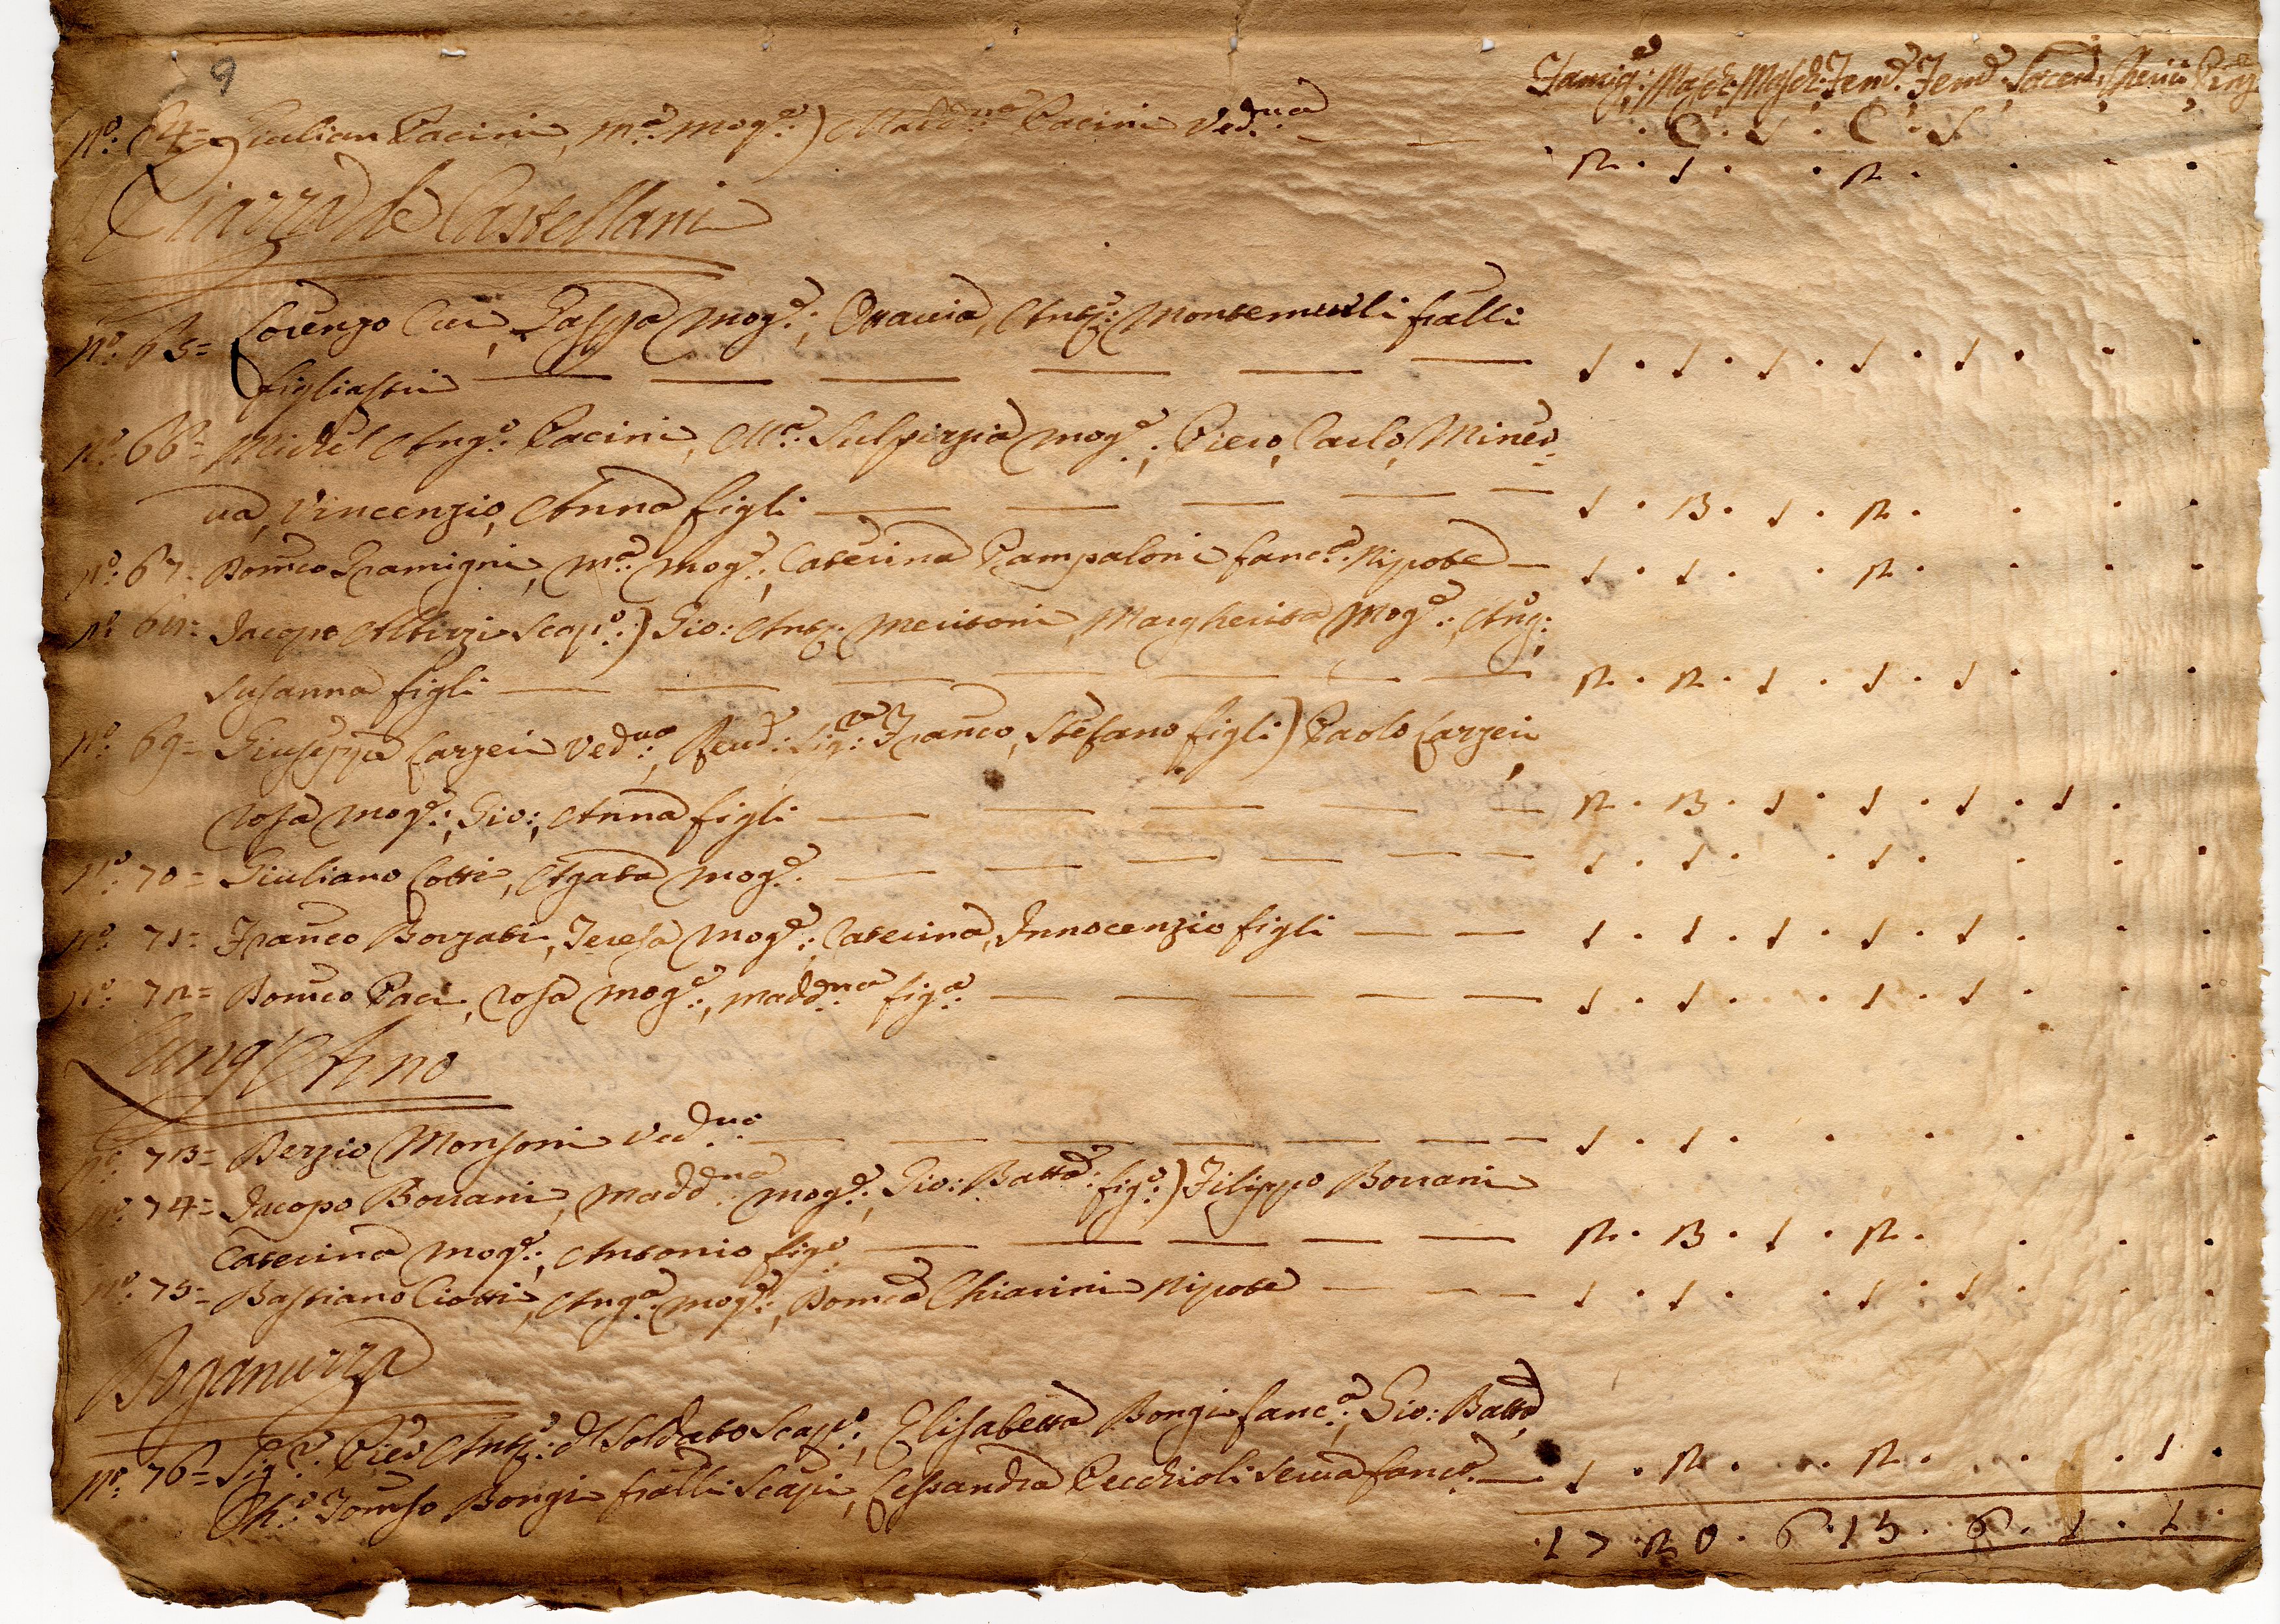 9
Famig:ᵉ Masch: Masch: Fem:ᵉ Fem:ᵉ Sacerd: Cherici
. C . S . C . S
Nº: 64= Giulian Pacini, Mª: mog:ᵉ) Madd:ⁿᵃ Pacini Ved:ᵘᵃ — — 2 . 1 . . 2 . . . .
Piazza de Castellani
Nº: 65= Lorenzo Cei, Gasp:ª mog:ᵉ; Ottavia, Ant:º Montemurli fratelli
figliastri — — — — — — 1 . 1 . 1 . 1 . 1 . . .
Nº: 66= Michel Ang:º Pacini, Mª: Sulpizia mog:ᵉ; Piero, Carlo, Miner=
va, Vincenzio, Anna figli — — — — — 1 . 3 . 1 . 2 . . . .
Nº: 67= Dom:co Framigni, Mª: mog:ᵉ; Caterina Pampaloni fanc:ª Nipote — 1 . 1 . . 2 . . . .
Nº: 68= Jacopo Albizi Scap:º) Gio: Ant:º Meritoni, Margherita Mog:ᵉ; Ang:º
Susanna figli — — — — — — — 2 . 2 . 1 . 1 . 1 . . .
Nº: 69= Giuseppa Carzeri Ved:ᵘᵃ, Reud: Sig:ʳᵉ Fran:co, Stefano figli) Paolo Carzeri,
Rosa mog:ᵉ; Gio:, Anna figli — — — — — 2 . 3 . 1 . 1 . 1 . 1 .
Nº: 70= Giuliano Cotti, Agata mog:ᵉ — — — — — — 1 . 1 . . 1 . . . .
Nº: 71= Fran:co Borzati, Teresa mog:ᵉ; Caterina, Innocenzio figli — — 1 . 1 . 1 . 1 . 1 . . .
Nº: 72= Dom:co Paci, Rosa mog:ᵉ, Madd:ⁿᵃ fig:ª — — — — — 1 . 1 . . 1 . 1 . . .
Lung'Arno
Nº: 73= Berzio Monsoni Ved:ᵘᵒ — — — — — — — 1 . 1 . . . . . .
Nº: 74= Jacopo Borrani, Madd:ⁿᵃ mog:ᵉ; Gio: Batta: fig:º) Filippo Borrani
Caterina mog:ᵉ; Antonio fig:º — — — — — 2 . 3 . 1 . 2 . . . .
Nº: 75= Bastiano Ciotti, Ang:ª mog:ᵉ; Dom:ca Chiarini Nipote — — — 1 . 1 . . 1 . 1 . . .
Doganuzza
Nº: 76= Sig:ʳᵉ Pier Ant:º d Soldato Scap:º; Elisabetta Bongi fanc:ª; Gio: Batta,
Ch:º Tom:so Bongi fratelli Scapi, Lessandra Pecchioli serva fanc:ª — 1 . 2 . . 2 . . . 1 .
. 17 20 . 6 . 15 . 6 . 1 . 1 .